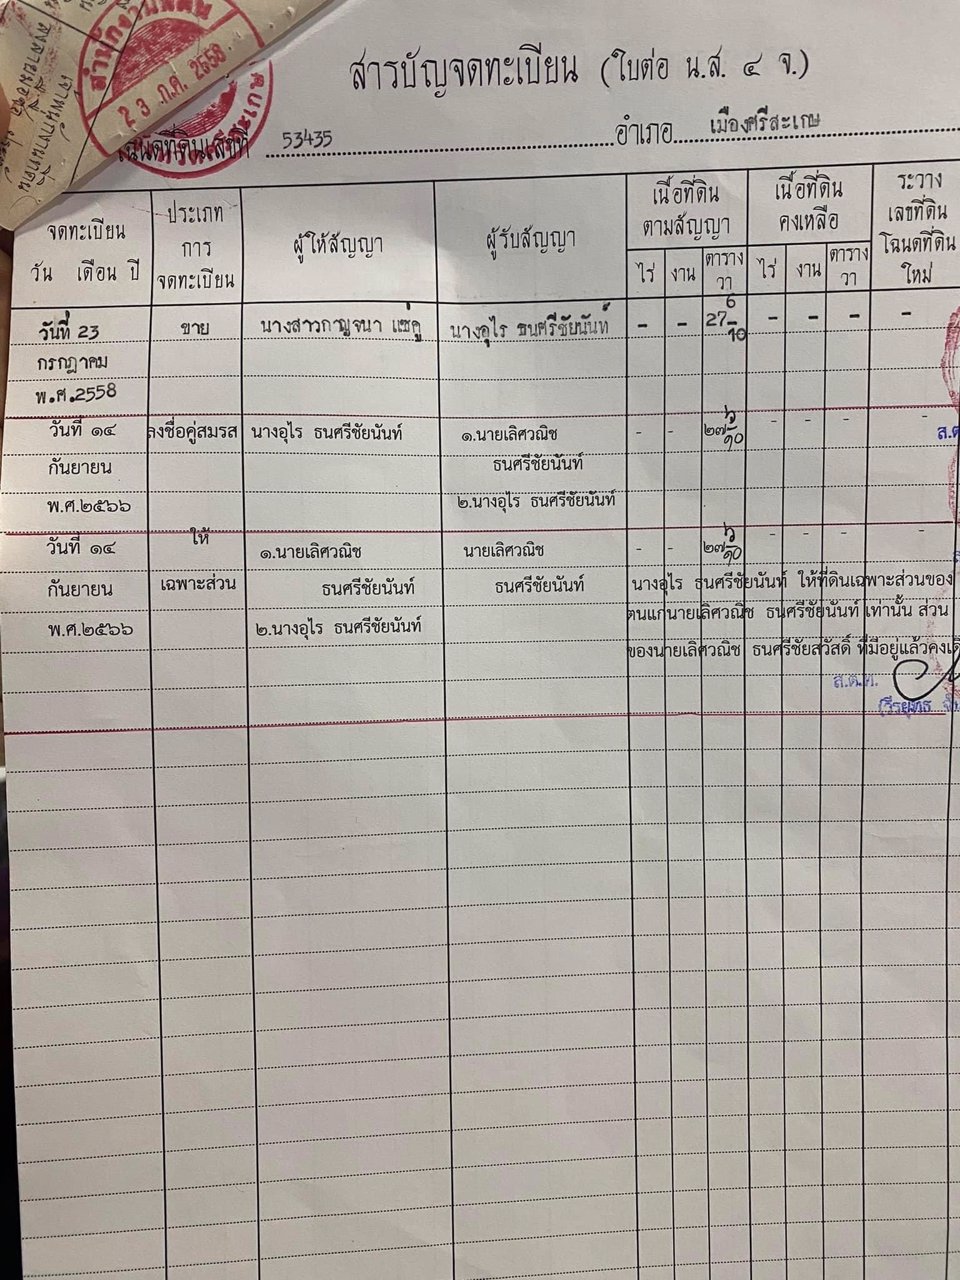 สารบัญจดทะเบียน (ใบต่อ น.ส. ๔ จ.)
โฉนดที่ดินเลขที่ 53435 อำเภอ เมืองศรีสะเกษ
23 ก.ค. 2558
จดทะเบียน วัน เดือน ปี
ประเภทการจดทะเบียน
ผู้ให้สัญญา
ผู้รับสัญญา
เนื้อที่ดินตามสัญญา
ไร่ งาน ตารางวา
เนื้อที่ดินคงเหลือ
ไร่ งาน ตารางวา
ระวาง เลขที่ดิน โฉนดที่ดินใหม่
วันที่ 23 ขาย นางสาวกาญจนา แซ่คู นางอุไร ธนศรีชัยนันท์ - - 27 6/10 - - - -
กรกฎาคม
พ.ศ.2558
วันที่ ๑๔ ลงชื่อคู่สมรส นางอุไร ธนศรีชัยนันท์ ๑.นายเลิศวณิช - - ๒๗ ๖/๑๐ - - - -
กันยายน ธนศรีชัยนันท์
พ.ศ.๒๕๖๖ ๒.นางอุไร ธนศรีชัยนันท์
วันที่ ๑๔ ให้ ๑.นายเลิศวณิช นายเลิศวณิช - - ๒๗ ๖/๑๐ - - - -
กันยายน เฉพาะส่วน ธนศรีชัยนันท์ ธนศรีชัยนันท์ นางอุไร ธนศรีชัยนันท์ ให้ที่ดินเฉพาะส่วนของ
พ.ศ.๒๕๖๖ ๒.นางอุไร ธนศรีชัยนันท์ ตนแก่นายเลิศวณิช ธนศรีชัยนันท์ เท่านั้น ส่วน
ของนายเลิศวณิช ธนศรีชัยสวัสดิ์ ที่มีอยู่แล้วคง
ส.ต.ต.